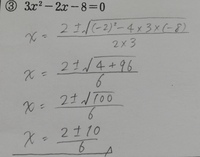 ③ 3x²−2x−8=0
x = (2±√((-2)²−4×3×(-8)))/(2×3)
x = (2±√(4+96))/6
x = (2±√100)/6
x = (2±10)/6